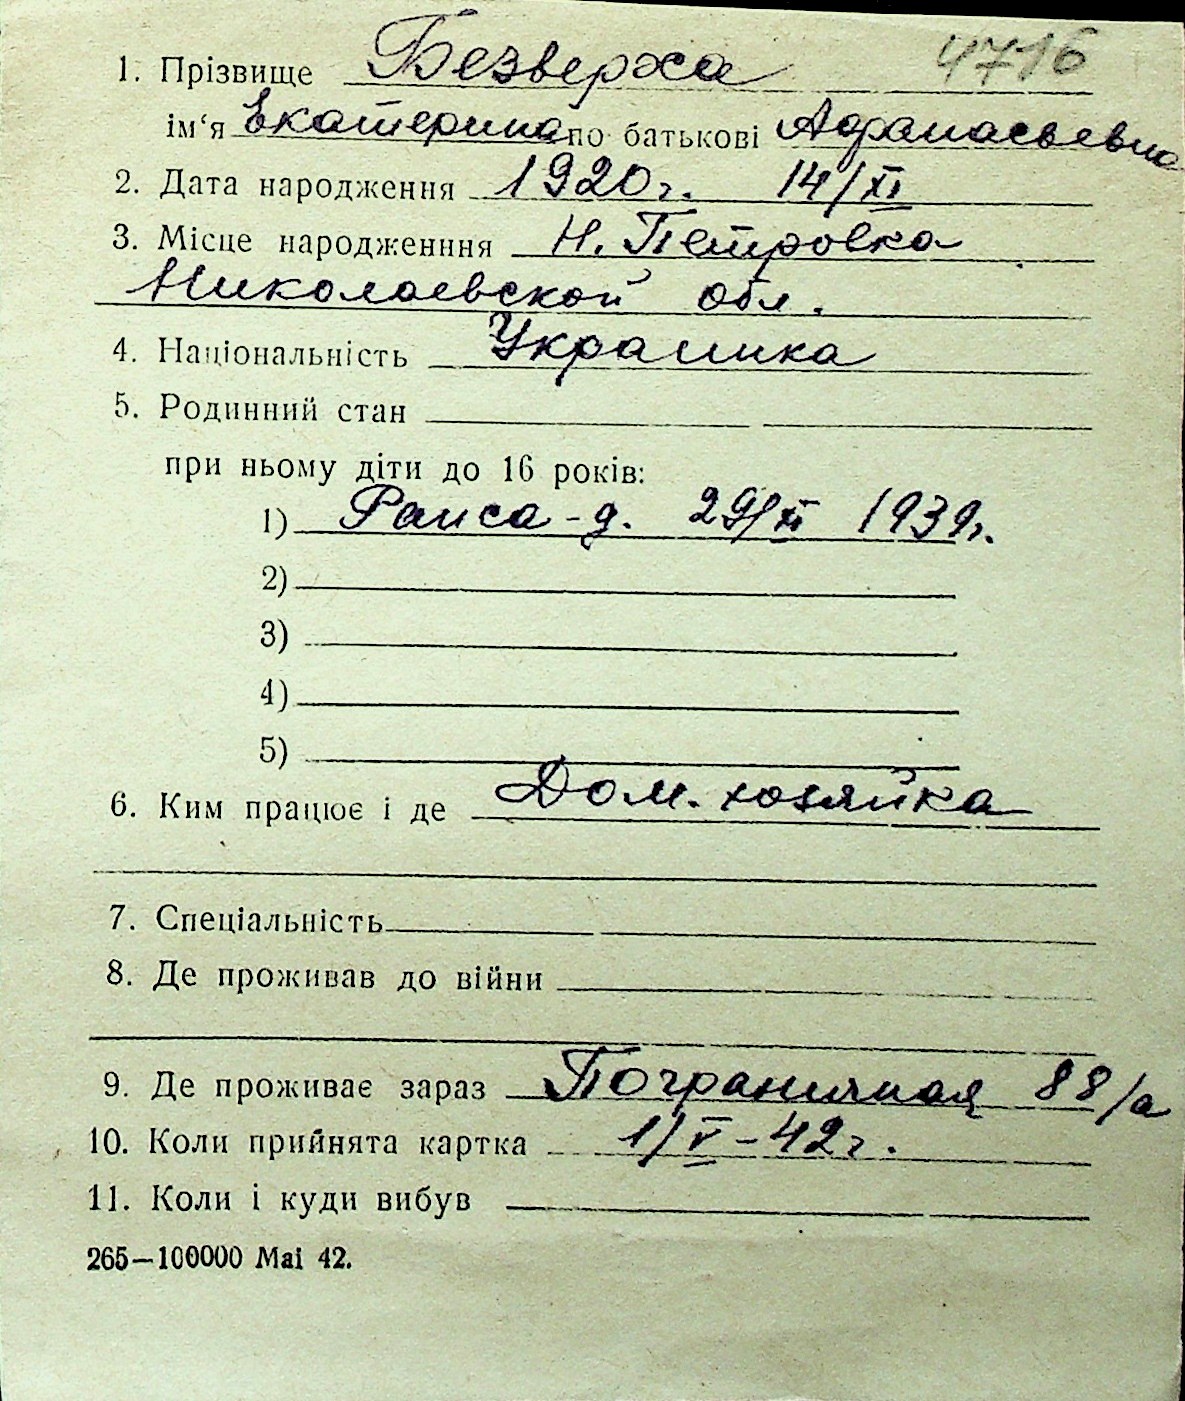 4716
1. Прізвище Безверха
ім'я Екатерина по батькові Афанасьевна
2. Дата народження 1920г. 14/XI
3. Місце народженння Н. Петровка
Николаевской обл.
4. Національність Украинка
5. Родинний стан
при ньому діти до 16 років:
1) Раиса - д. 29/XI 1939г.
2)
3)
4)
5)
6. Ким працює і де Дом. хозяйка
7. Спеціальність
8. Де проживав до війни
9. Де проживає зараз Пограничная 88/а
10. Коли прийнята картка 1/V - 42г.
11. Коли і куди вибув
265—100000 Mai 42.